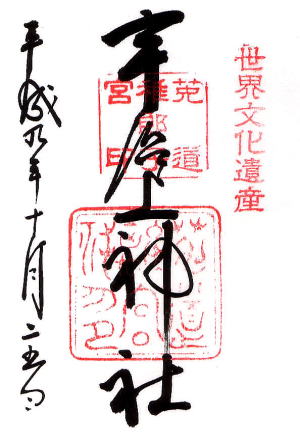 世界文化遺産
宇治上神社
菟道
稚郎
宮印
平成九年十月二五日